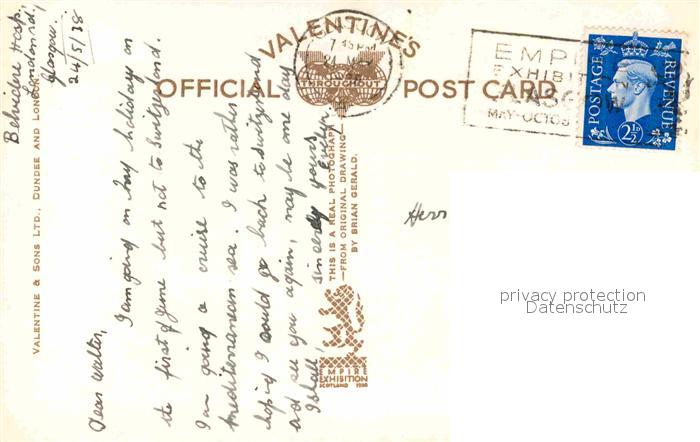 VALENTINE'S
OFFICIAL POST CARD
7 45 PM
EMPI
EXHIBIT
MAY-OCTOB
POSTAGE
REVENUE
2½D
Belvidere Hosp.
London rd,
Glasgow.
24/5/38
Dear Walter,
I am going on my holidays on
the first of June but not to Switzerland.
I am going a cruise to the
mediterranean sea. I was rather
hoping I could go back to Switzerland
and see you again, may be one day
I shall,
sincerely yours
Evelyn
VALENTINE & SONS LTD., DUNDEE AND LONDON
THIS IS A REAL PHOTOGRAPH
—FROM ORIGINAL DRAWING—
BY BRIAN GERALD.
EMPIRE
EXHIBITION
SCOTLAND 1938
Herr
privacy protection
Datenschutz